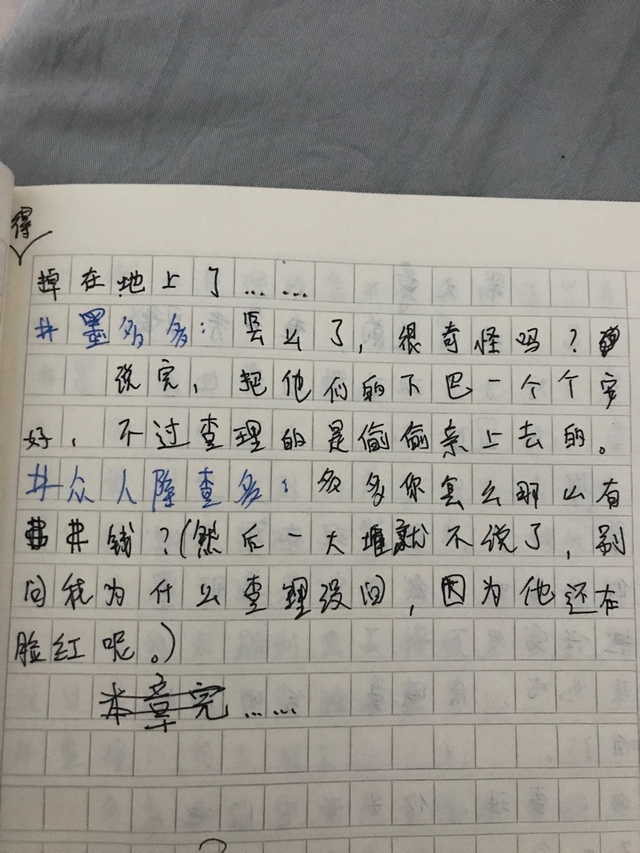 得
掉在地上了……
#墨多多：怎么了，很奇怪吗？
说完，把他们的下巴一个个安
好，不过查理的是偷偷亲上去的。
#众人除查多：多多你怎么那么有
钱？(然后一大堆就不说了，别
问我为什么查理没问，因为他还在
脸红呢。)
本章完……